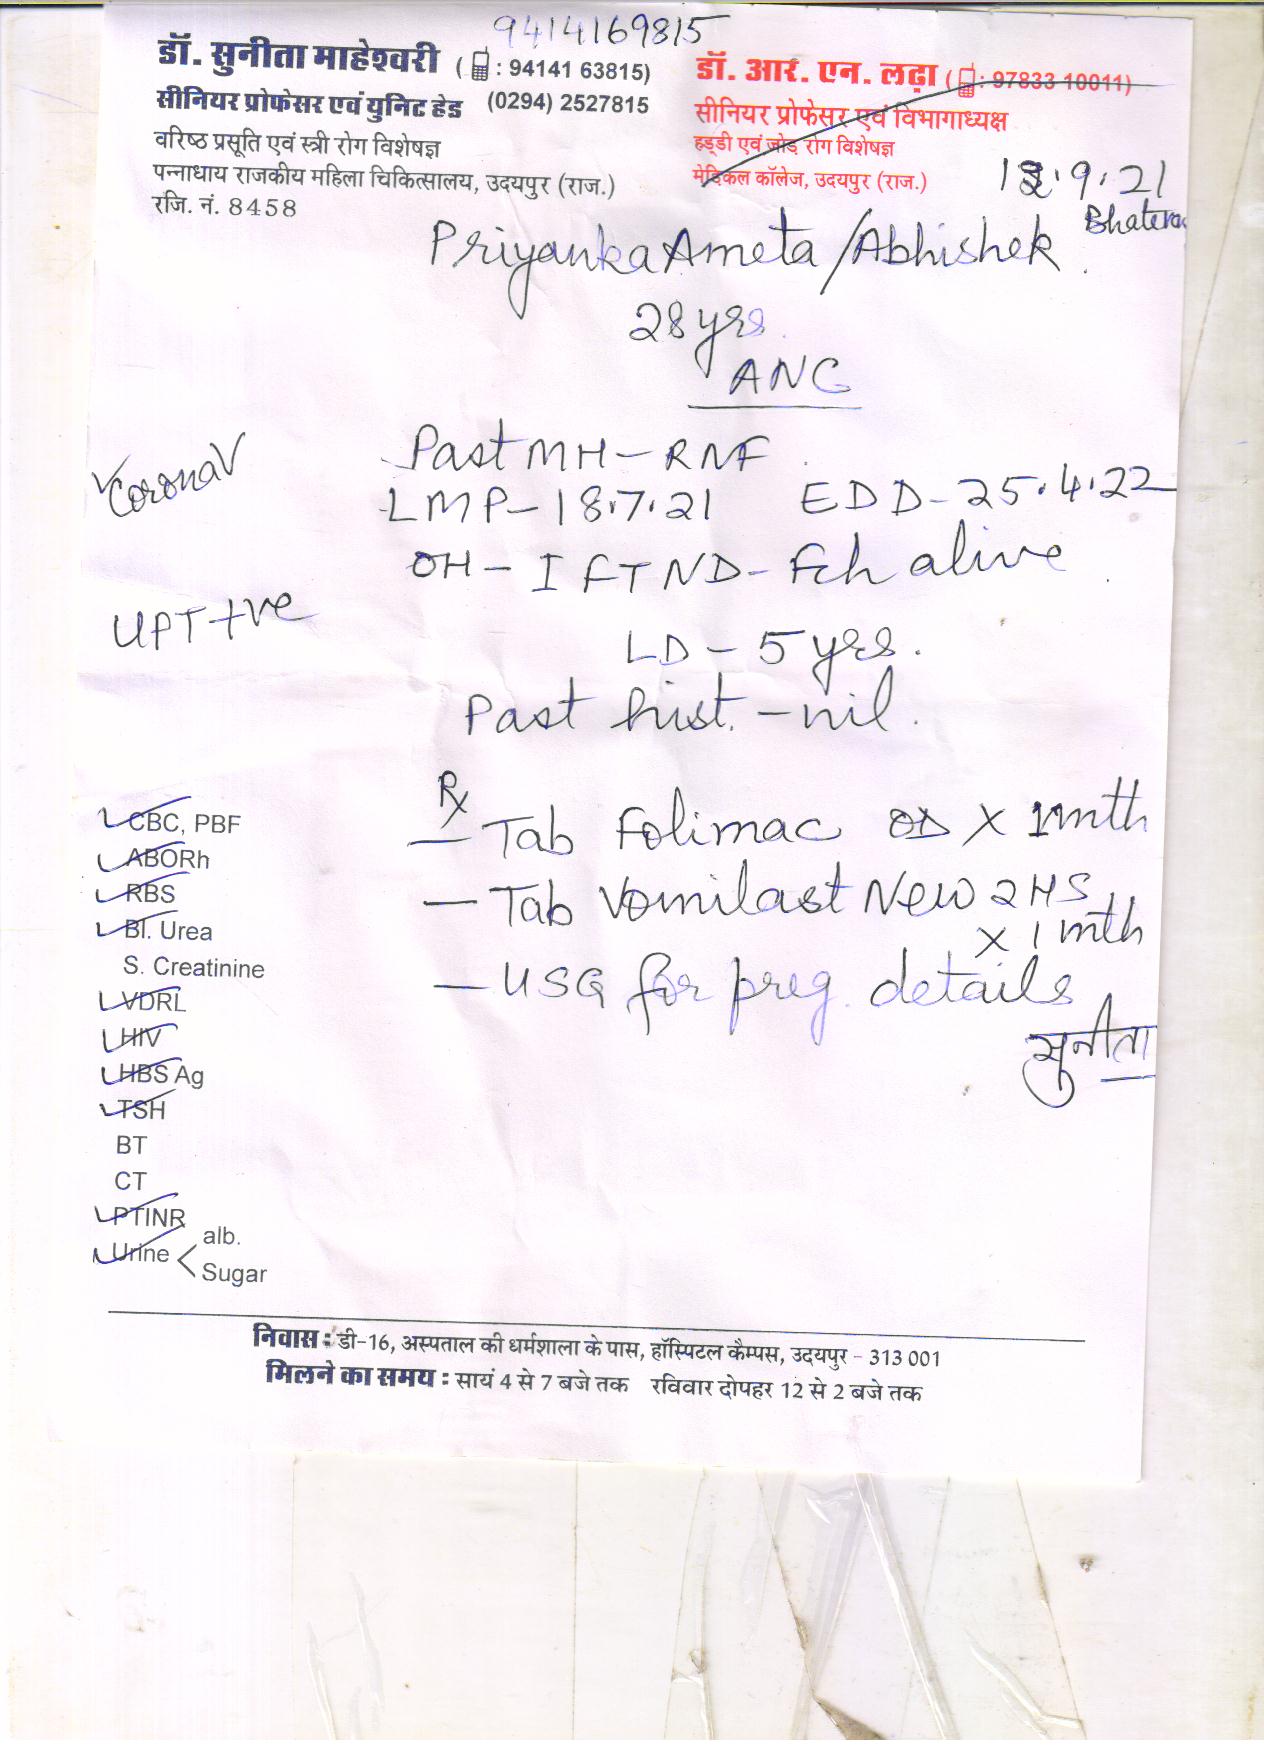 9414169815
डॉ. सुनीता माहेश्वरी (: 94141 63815)
सीनियर प्रोफेसर एवं युनिट हेड (0294) 2527815
वरिष्ठ प्रसूति एवं स्त्री रोग विशेषज्ञ
पन्नाधाय राजकीय महिला चिकित्सालय, उदयपुर (राज.)
रजि. नं. 8458
डॉ. आर. एन. लढ़ा (: 97833 10011)
सीनियर प्रोफेसर एवं विभागाध्यक्ष
हड्डी एवं जोड़ रोग विशेषज्ञ
मेडिकल कॉलेज, उदयपुर (राज.)
.9.21
Priyanka Ameta / Abhishek
28 yrs.
ANC
Past MH - RNF
Corona V
LMP - 18.7.21 EDD - 25.4.22
OH - I FTND - Fch alive
UPT +ve
LD - 5 yrs.
Past hist. - nil.
Rx
- Tab Folimac OD X 1 mth
- Tab Vomilast New 2 HS
X 1 mth
- USG for preg. details
सुनीता
CBC, PBF
ABORh
RBS
Bl. Urea
S. Creatinine
VDRL
HIV
HBS Ag
TSH
BT
CT
PTINR
Urine < alb.
Sugar
निवास : डी-16, अस्पताल की धर्मशाला के पास, हॉस्पिटल कैम्पस, उदयपुर - 313 001
मिलने का समय : सायं 4 से 7 बजे तक रविवार दोपहर 12 से 2 बजे तक